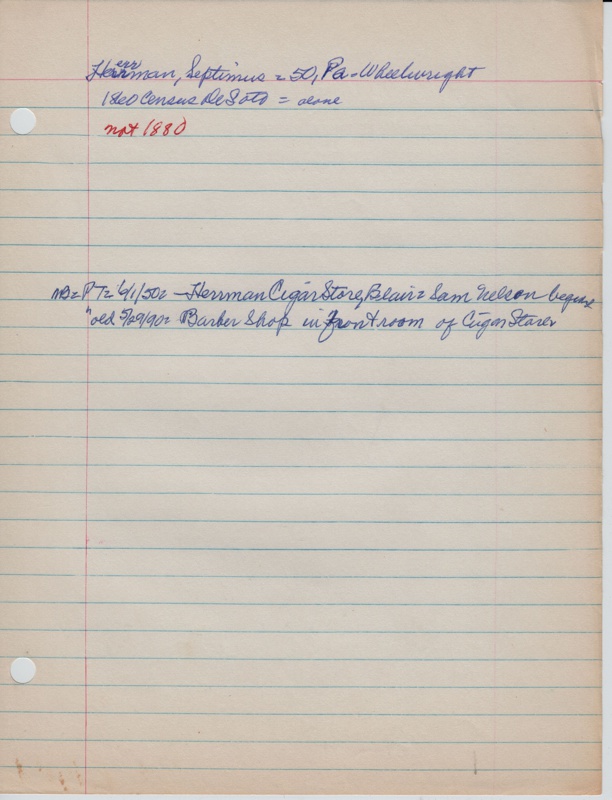 Herrman, Septimus = 50, Pa - Wheelwright
1860 Census DeSoto = alone
not 1880
NB = PT = 6/1/50 = - Herrman Cigar Store, Blair = Sam Nelson begins
"old 5/29/90 = Barber Shop in front room of Cigar Store